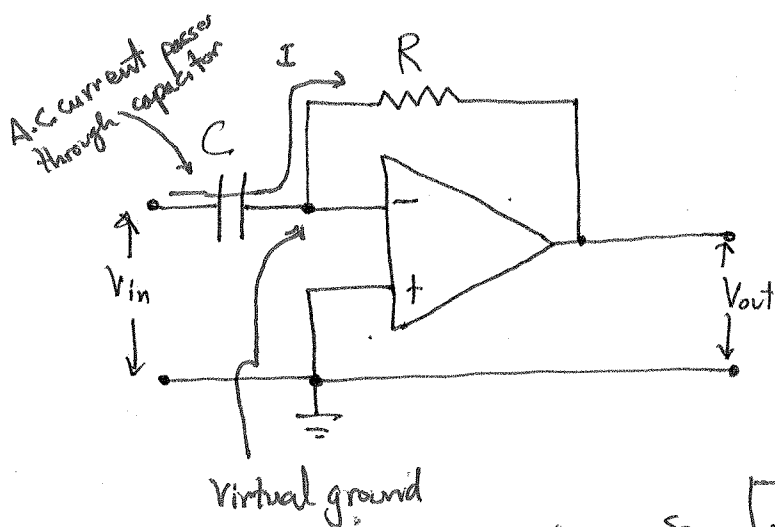 A.C. current passes
through capacitor
I
R
C
Vin
-
+
Vout
Virtual ground